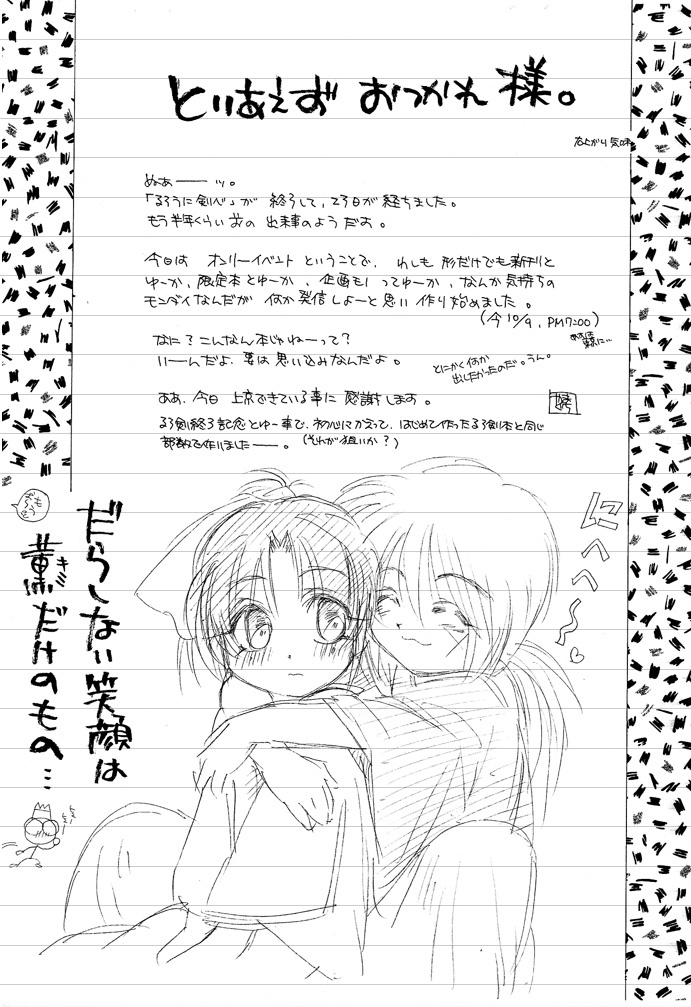 とりあえず おつかれ様。
右上がり気味
ぬぁーーッ。
「るろうに剣心」が 終了して、23日が経ちました。
もう半年くらい前の 出来事のようだお。
今日は オンリーイベント ということで、わしも 形だけでも新刊と
ゆーか、限定本とゆーか、企画もってゆーか、なんか気持ちの
モンダイなんだが 何か発信しよーと思い 作り始めました。
(今10/9、PM7:00)
なに?こんなん本じゃねーって?
いーんだよ、要は思い込みなんだよ。
とにかく何か
出したかったのだ。うん。
ああ、今日 上京できている事に 感謝します。
るろ剣終了記念とゆー事で、初心にかえって、はじめて作ったるろ剣本と同じ
部数で作りましたーー。(それが狙いか?)
だらしない笑顔は
薫だけのもの…
キミ
にへへ〜♡